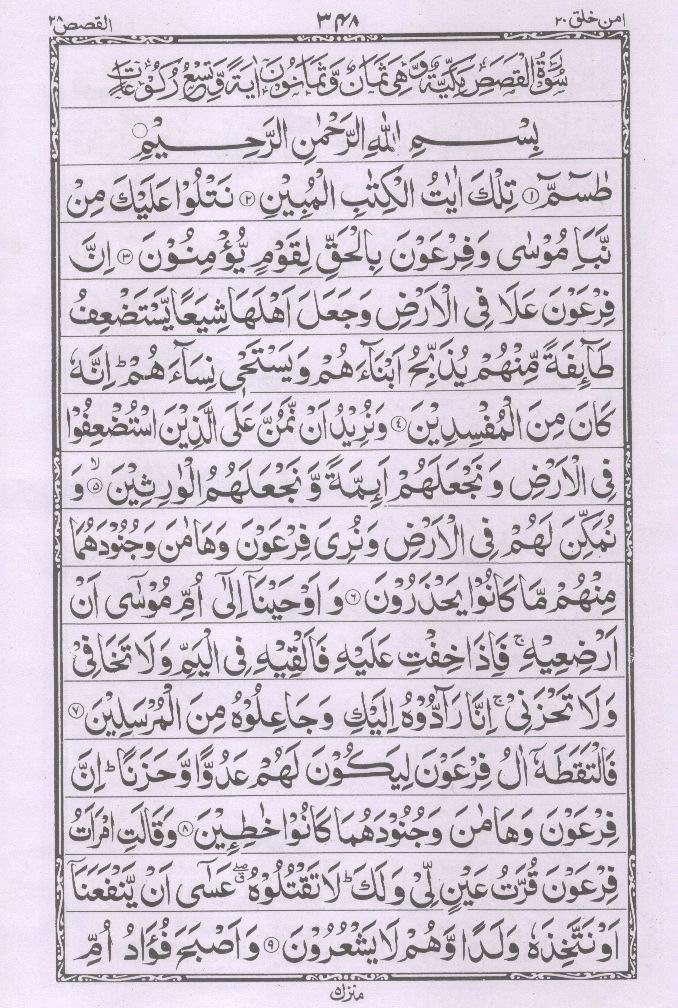 امن خلق ۲۰ ۳۴۸ القصص ۲۸
سُوْرَةُ الْقَصَصِ مَكِّيَّةٌ وَّهِيَ ثَمَانٌ وَّثَمَانُوْنَ اٰيَةً وَّتِسْعُ رُكُوْعَاتٍ
بِسْمِ اللّٰهِ الرَّحْمٰنِ الرَّحِيْمِ ○
طٰسٓمّٓ ۝۱ تِلْكَ اٰيٰتُ الْكِتٰبِ الْمُبِيْنِ ۝۲ نَتْلُوْا عَلَيْكَ مِنْ
نَّبَاِ مُوْسٰى وَفِرْعَوْنَ بِالْحَقِّ لِقَوْمٍ يُّؤْمِنُوْنَ ۝۳ اِنَّ
فِرْعَوْنَ عَلَا فِى الْاَرْضِ وَجَعَلَ اَهْلَهَا شِيَعًا يَّسْتَضْعِفُ
طَآئِفَةً مِّنْهُمْ يُذَبِّحُ اَبْنَآءَهُمْ وَيَسْتَحْيٖ نِسَآءَهُمْ ؕ اِنَّهٗ
كَانَ مِنَ الْمُفْسِدِيْنَ ۝۴ وَنُرِيْدُ اَنْ نَّمُنَّ عَلَى الَّذِيْنَ اسْتُضْعِفُوْا
فِى الْاَرْضِ وَنَجْعَلَهُمْ اَئِمَّةً وَّنَجْعَلَهُمُ الْوٰرِثِيْنَ ۝۵ ۙ وَ
نُمَكِّنَ لَهُمْ فِى الْاَرْضِ وَنُرِىَ فِرْعَوْنَ وَهَامٰنَ وَجُنُوْدَهُمَا
مِنْهُمْ مَّا كَانُوْا يَحْذَرُوْنَ ۝۶ وَاَوْحَيْنَآ اِلٰٓى اُمِّ مُوْسٰٓى اَنْ
اَرْضِعِيْهِ ۚ فَاِذَا خِفْتِ عَلَيْهِ فَاَلْقِيْهِ فِى الْيَمِّ وَلَا تَخَافِىْ
وَلَا تَحْزَنِىْ ۚ اِنَّا رَآدُّوْهُ اِلَيْكِ وَجَاعِلُوْهُ مِنَ الْمُرْسَلِيْنَ ۝۷
فَالْتَقَطَهٗٓ اٰلُ فِرْعَوْنَ لِيَكُوْنَ لَهُمْ عَدُوًّا وَّحَزَنًا ؕ اِنَّ
فِرْعَوْنَ وَهَامٰنَ وَجُنُوْدَهُمَا كَانُوْا خٰطِـِٕيْنَ ۝۸ وَقَالَتِ امْرَاَتُ
فِرْعَوْنَ قُرَّتُ عَيْنٍ لِّىْ وَلَكَ ؕ لَا تَقْتُلُوْهُ ۖ عَسٰٓى اَنْ يَّنْفَعَنَآ
اَوْ نَتَّخِذَهٗ وَلَدًا وَّهُمْ لَا يَشْعُرُوْنَ ۝۹ وَاَصْبَحَ فُؤَادُ اُمِّ
منزل ۵